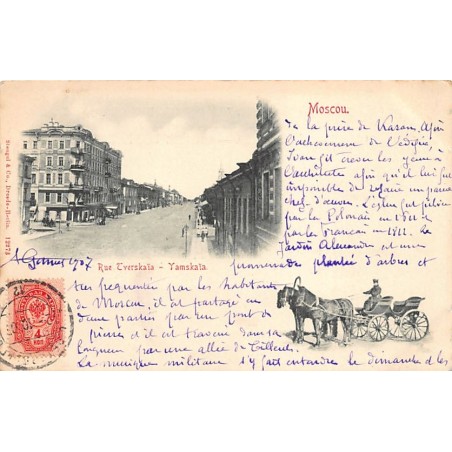 Moscou.
de la prise de Kazan. Après
l'achèvement de l'édifice,
Ivan fit crever les yeux à
l'architecte afin qu'il lui fut
impossible de refaire un pareil
chef-d'œuvre. L'église fut pillée
par les Polonais en 1611 et
par les Français en 1812. Le
Jardin Alexandre est une
promenade plantée d'arbres et
Stengel & Co., Dresde-Berlin. 12973
Rue Tverskaïa - Yamskaïa.
Janvier 1907
très fréquentée par les habitants
de Moscou, il est partagé en
deux parties par un pont de
pierres et il est traversé dans sa
longueur par une allée de Tilleuls.
La musique militaire s'y fait entendre le dimanche et les
4
КОП